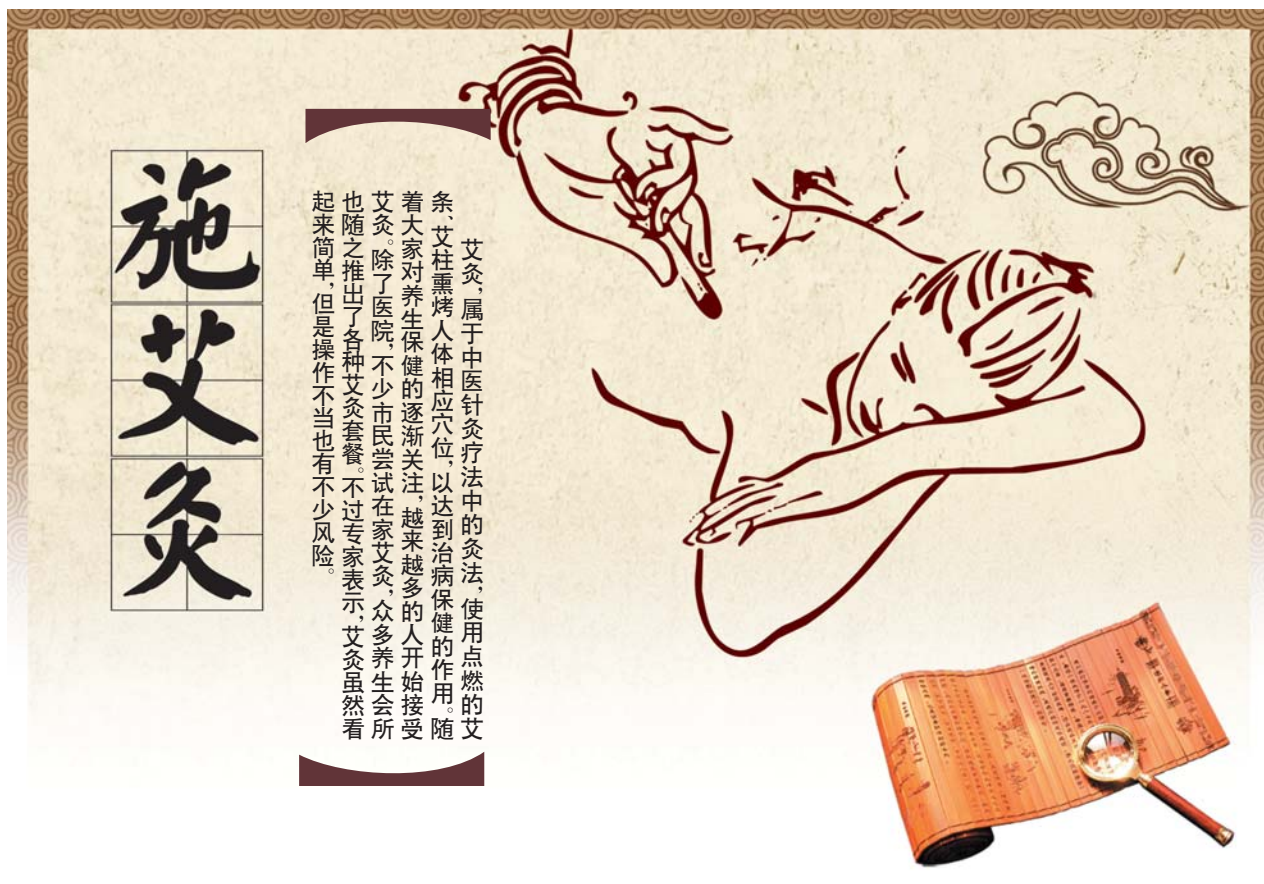 施艾灸
艾灸，属于中医针灸疗法中的灸法，使用点燃的艾
条、艾柱熏烤人体相应穴位，以达到治病保健的作用。随
着大家对养生保健的逐渐关注，越来越多的人开始接受
艾灸。除了医院，不少市民尝试在家艾灸，众多养生会所
也随之推出了各种艾灸套餐。不过专家表示，艾灸虽然看
起来简单，但是操作不当也有不少风险。